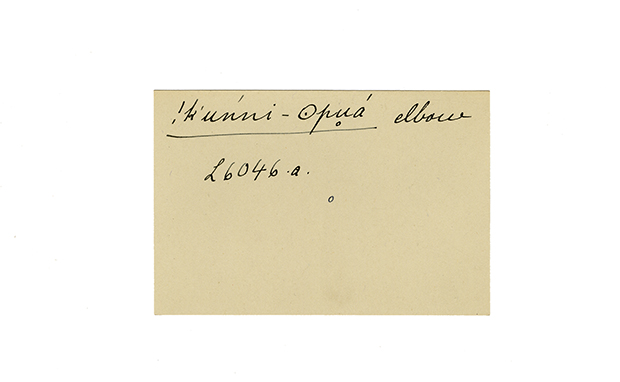 !kuńni - ʘpu̥á elbow
L 6046.a.